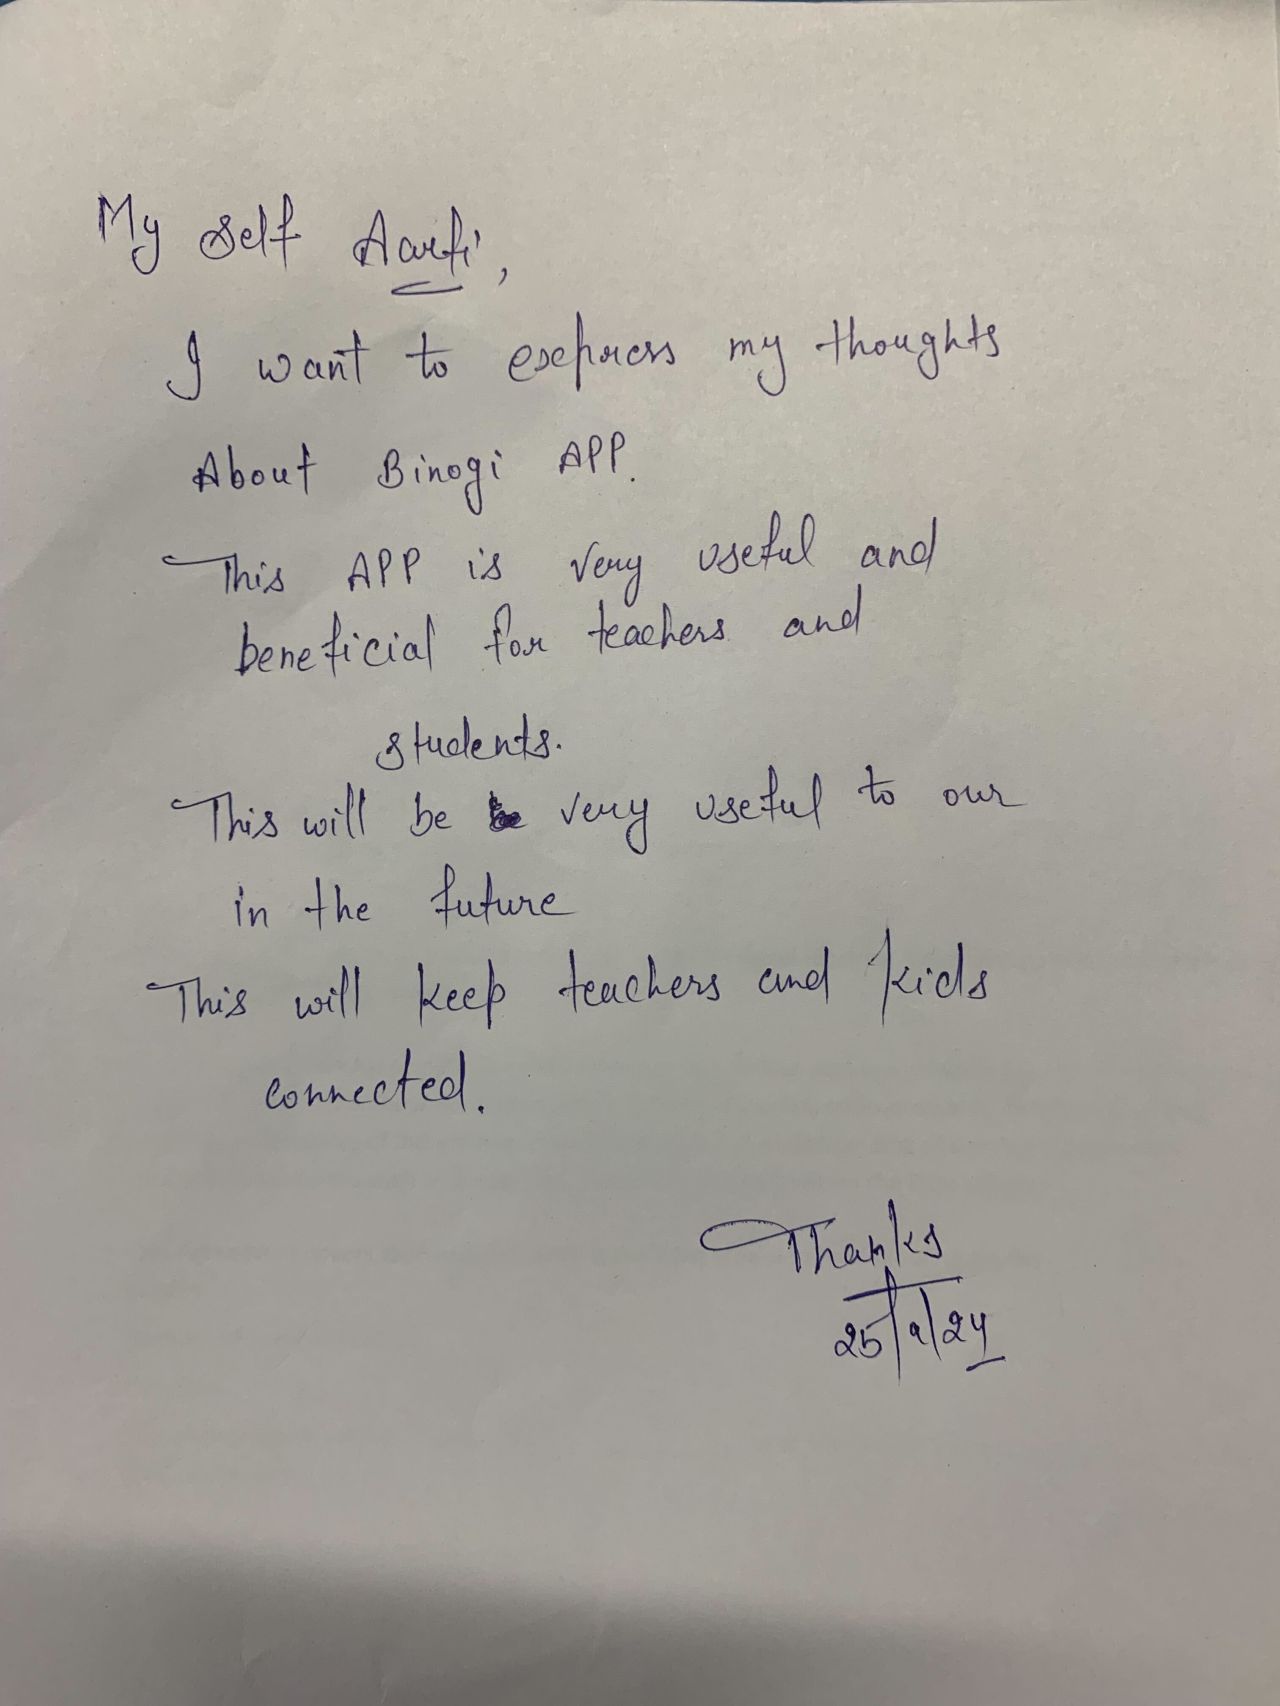 My self Aarti,
I want to express my thoughts
About Binogi APP.
This APP is very useful and
beneficial for teachers and
students.
This will be very useful to our
in the future
This will keep teachers and kids
connected.
Thanks
25/9/24